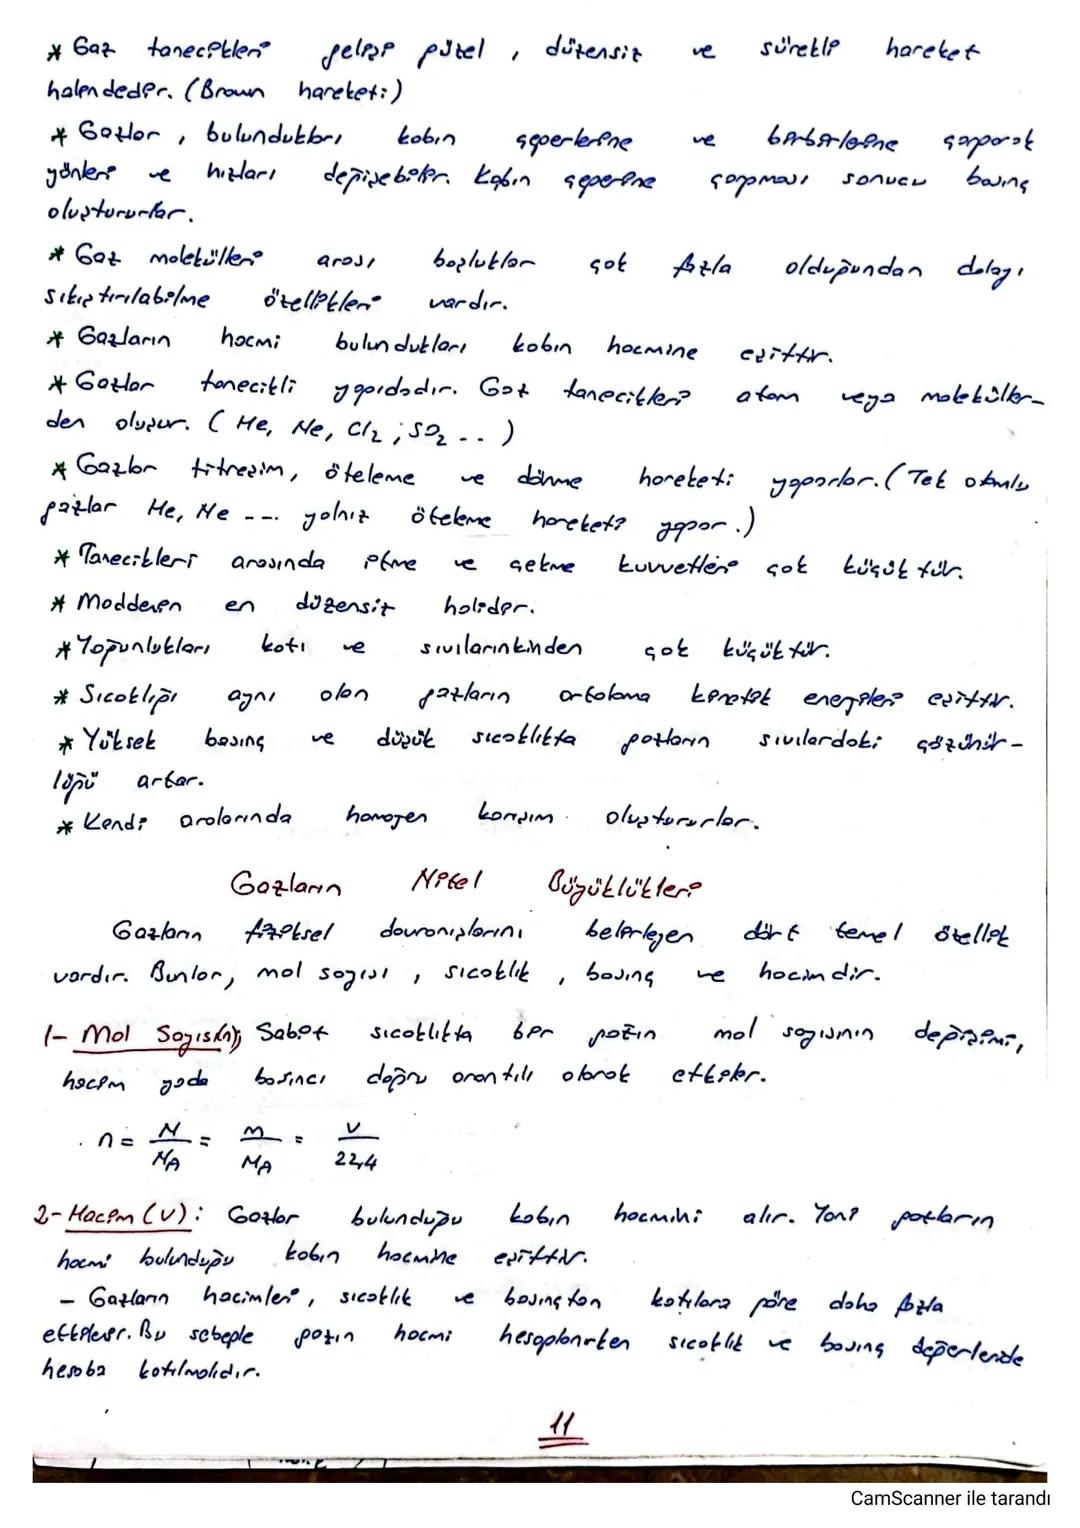 * Gaz tanecikleri gelişi güzel, düzensiz ve sürekli hareket
halendedir. (Brown hareketi)
* Gazlar, bulundukları kabın çeperlerine ve birbirlerine çarparak
yönleri ve hızları değişebilir. Kabın çeperine çarpması sonucu basınç
oluştururlar.
* Gaz molekülleri arası boşluklar çok fazla olduğundan dolayı
sıkıştırılabilme özellikleri vardır.
* Gazların hacmi bulundukları kabın hacmine eşittir.
* Gazlar tanecikli yapıdadır. Gaz tanecikleri atom veya moleküller-
den oluşur. (He, Ne, Cl₂, SO₂ ..)
* Gazlar titreşim, öteleme ve dönme hareketi yaparlar. (Tek atomlu
gazlar He, Ne --- yalnız öteleme hareketi yapar.)
* Tanecikleri arasında itme ve çekme kuvvetleri çok küçüktür.
* Maddenin en düzensiz halidir.
* Yoğunlukları katı ve sıvılarınkinden çok küçüktür.
* Sıcaklığı aynı olan gazların ortalama kinetik enerjileri eşittir.
* Yüksek basınç ve düşük sıcaklıkta gazların sıvılardaki çözünür-
lüğü artar.
* Kendi aralarında homojen karışım oluştururlar.
Gazların Nitel Büyüklükleri
Gazların fiziksel davranışlarını belirleyen dört temel özellik
vardır. Bunlar, mol sayısı, sıcaklık, basınç ve hacimdir.
1- Mol Sayısı(n); Sabit sıcaklıkta bir gazın mol sayısının değişimi,
hacim yada basıncı doğru orantılı olarak etkiler.
n = N/NA = m/MA = V/22,4
2- Hacim (V): Gazlar bulunduğu kabın hacmini alır. Yani gazların
hacmi bulunduğu kabın hacmine eşittir.
- Gazların hacimleri, sıcaklık ve basınçtan katılara göre daha fazla
etkilenir. Bu sebeple gazın hacmi hesaplanırken sıcaklık ve basınç değerleride
hesaba katılmalıdır.
11
CamScanner ile tarandı